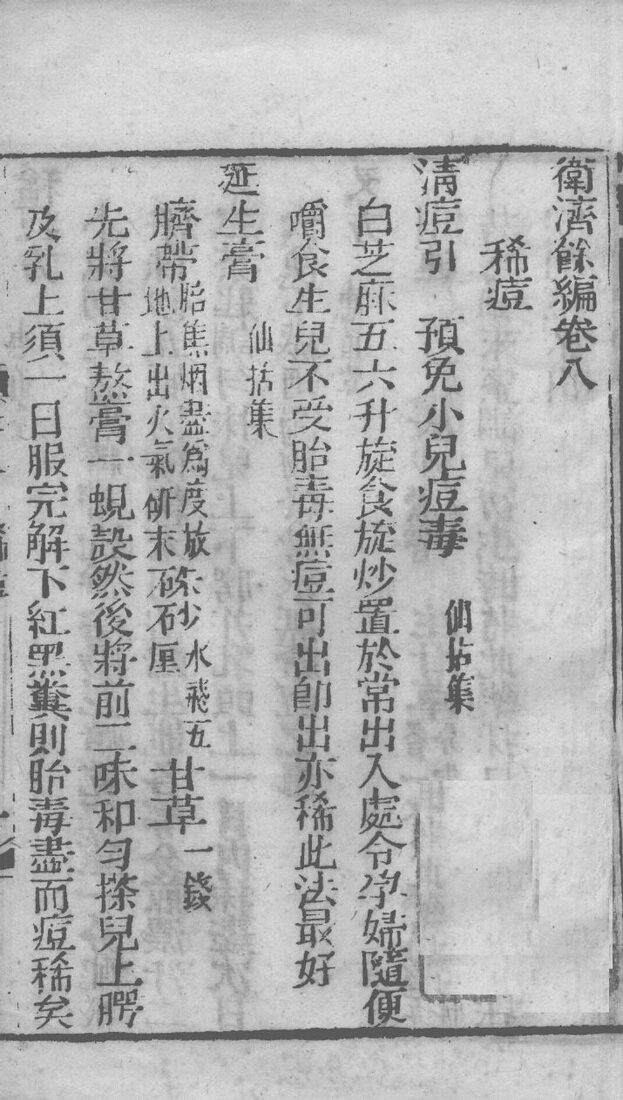 衛濟餘編卷八
稀痘
清痘引　預免小兒痘毒　仙拈集
白芝麻五六升旋食旋炒置於常出入處令孕婦隨便
嚼食生兒不受胎毒無痘可出卽出亦稀此法最好
延生膏　仙拈集
臍帶胎焦烟盡爲度放地上出火氣研末硃砂水飛五厘甘草一錢
先將甘草熬膏一蜆殼然後將前二味和勻搽兒上腭
及乳上須一日服完解下紅黑糞則胎毒盡而痘稀矣